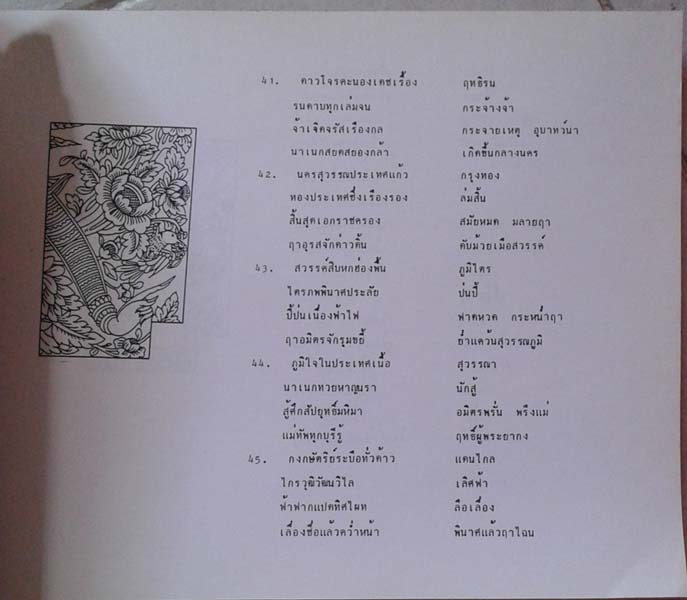 41. ดาวโจรคะนองเดชเรื้อง ฤทธิรน
รนดาบทุกเล่มจน กระจ้างจ้า
จ้าเจิดจรัสเรืองกล กระจายเหตุ อุบาทว์นา
นาเนกสยดสยองกล้า เกิดขึ้นกลางนคร
42. นครสุวรรณประเทศแก้ว กรุงทอง
ทองประเทศซึ่งเรืองรอง ล่มสิ้น
สิ้นสุดเอกราชครอง สมัยหมด มลายฤๅ
ฤๅอุรสจักด่าวดิ้น ดับม้วยเมือสวรรค์
43. สวรรค์สิบหกฮ่องพื้น ภูมิไตร
ไตรภพพินาศประลัย ป่นปี้
ปี้ป่นเนื่องฟ้าไฟ ฟาดหวด กระหน่ำฤๅ
ฤๅอมิตรจักรุมขยี้ ย่ำแดว้นสุวรรณภูมิ
44. ภูมิใจในประเทศเนื้อ สุวรรณา
นาเนกทวยหาญนรา นักสู้
สู้ศึกสัปยุทธิ์มหิมา อมิตรพรั่น พรึงแม่
แม่ทัพทุกบุรีรู้ ฤทธิ์ผู้พระยากง
45. กงกษัตริย์ระบือทั่วด้าว แดนไกล
ไกรวุฒิวัฒนวิไล เลิศฟ้า
ฟ้าฟากแปดทิศไผท ลือเลื่อง
เลื่องชื่อแล้วคว่ำหน้า พินาศแล้วฤๅไฉน